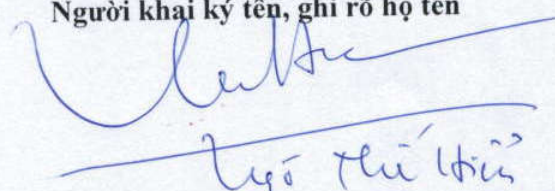 Người khai ký tên, ghi rõ họ tên
Ngô Thế Hiển